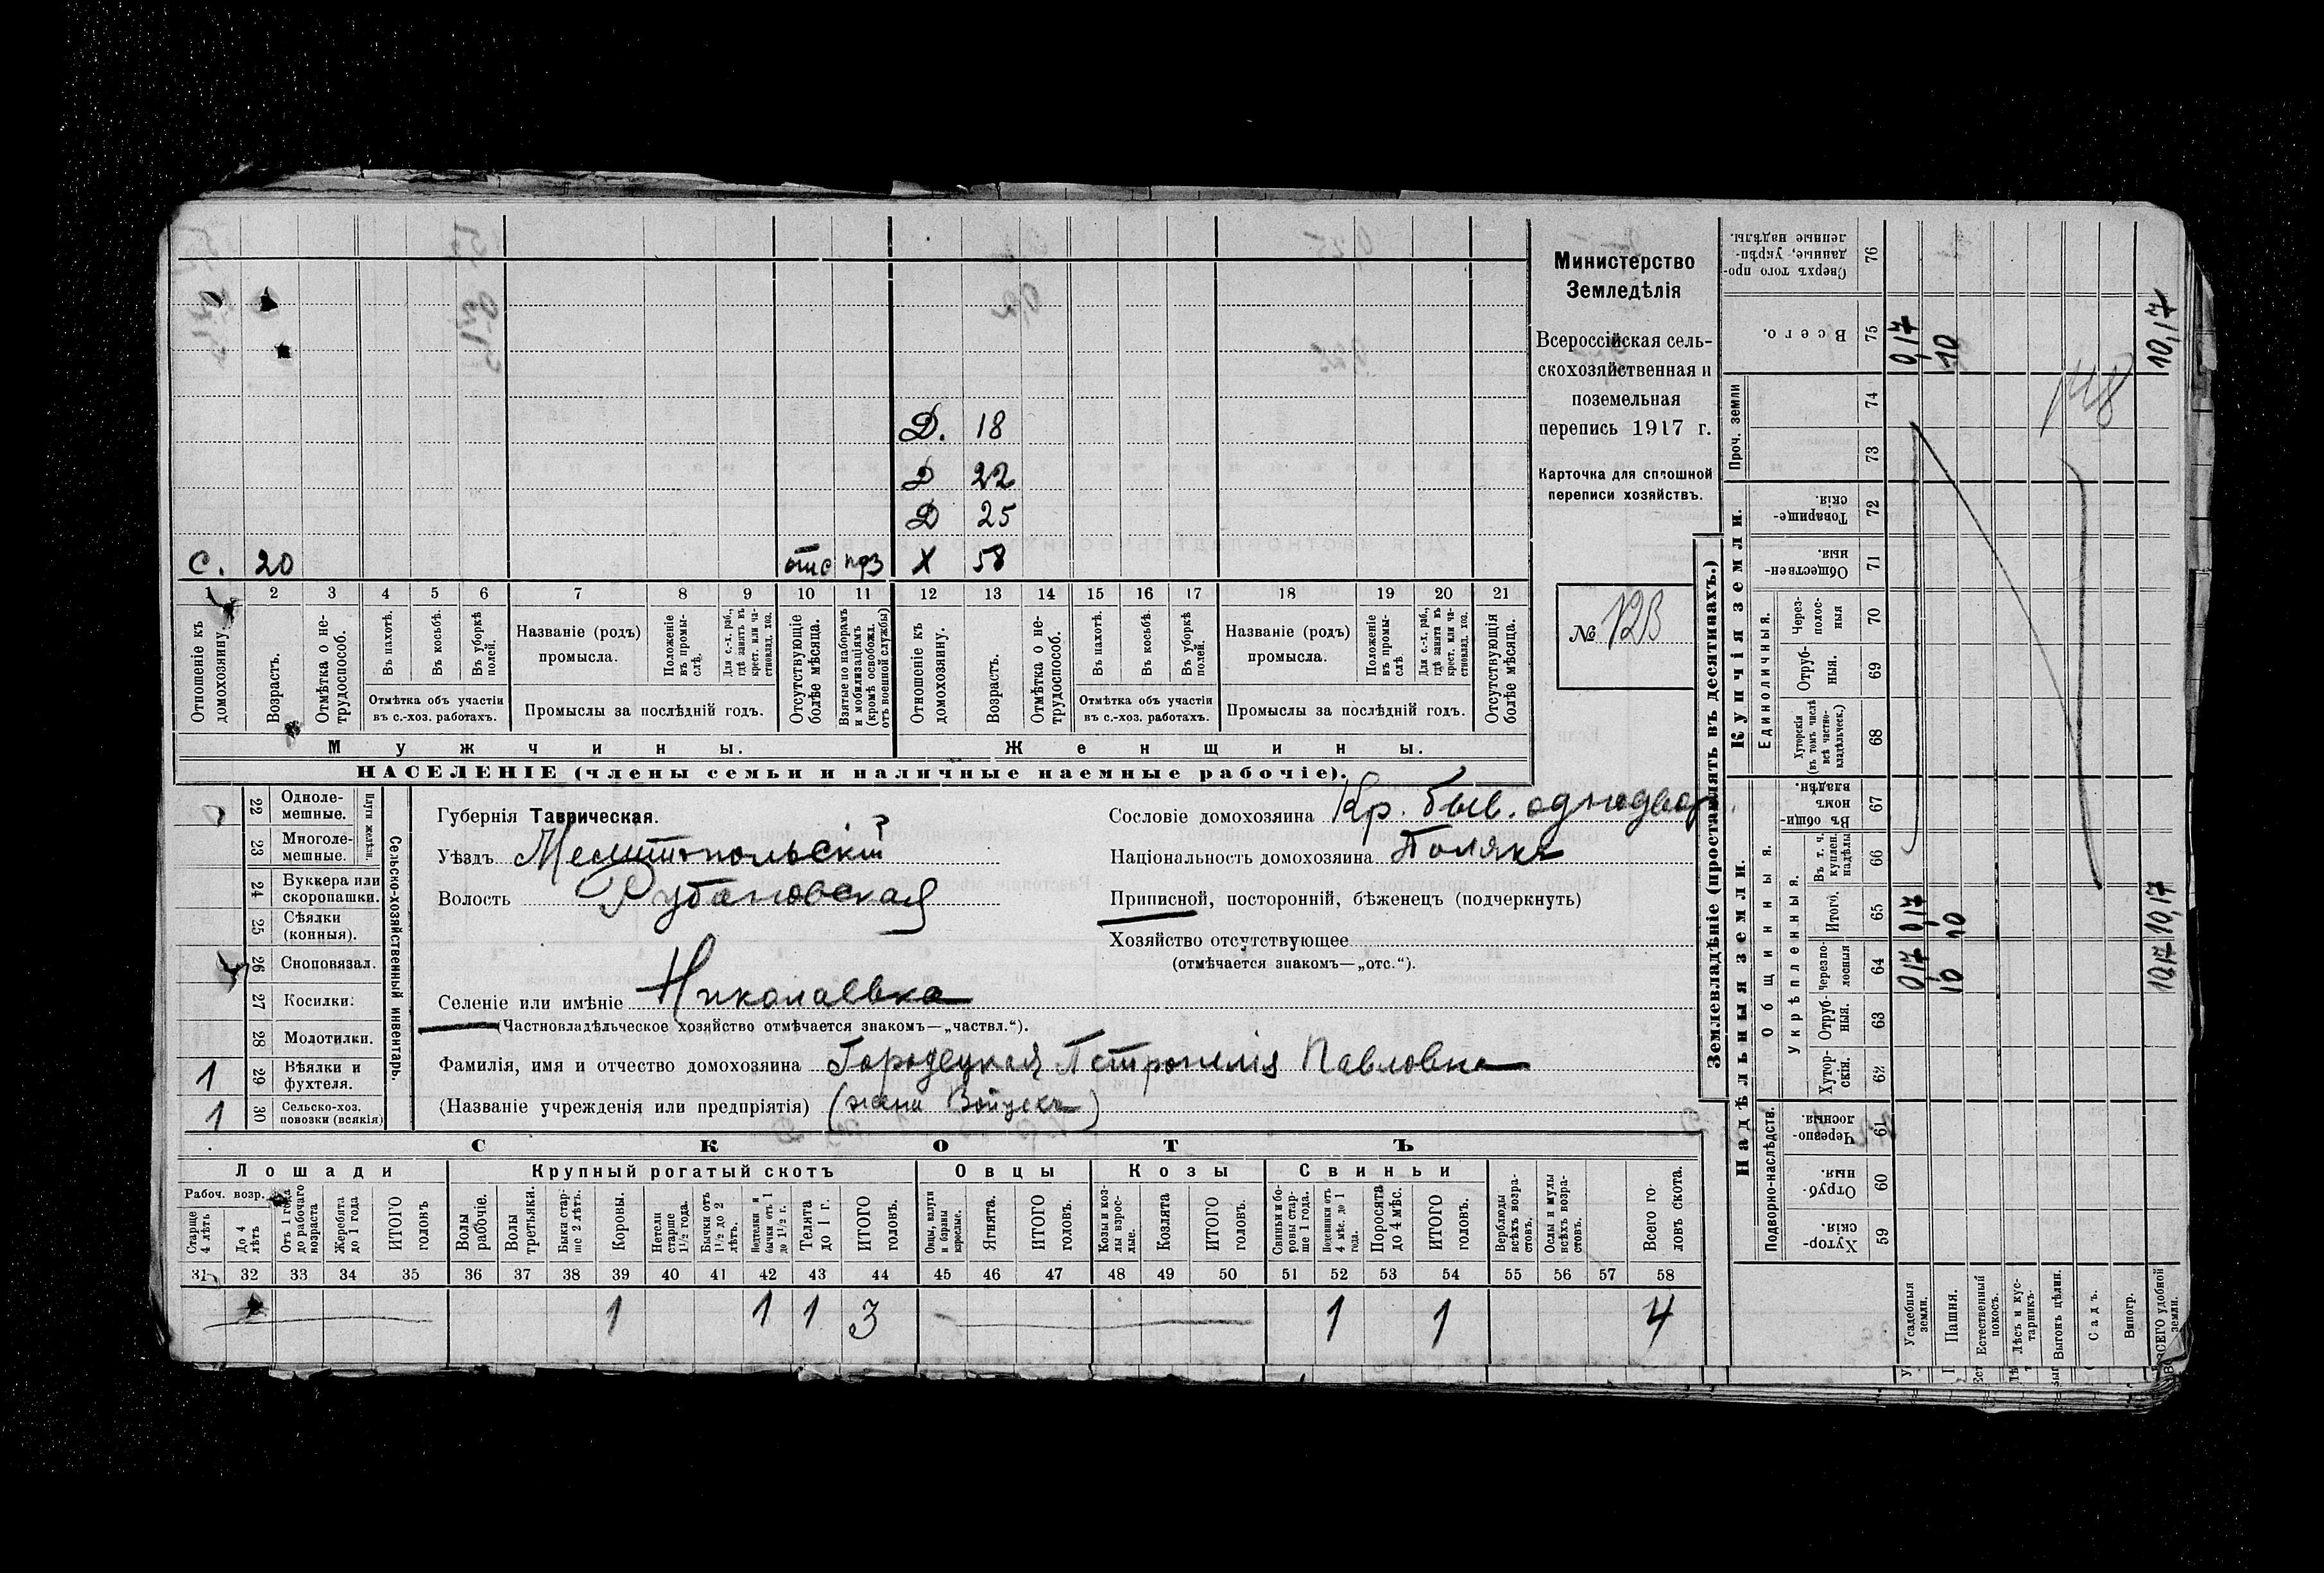 Министерство
Земледѣлія
Всероссійская сель-
скохозяйственная и
поземельная
перепись 1917 г.
Карточка для сплошной
переписи хозяйствъ.
№
Д. 18
Д 22
Д 25
С. 20 отс Х 58
1 2 3 4 5 6 7 8 9 10 11 12 13 14 15 16 17 18 19 20 21
Отношеніе къ домохозяину.
Возрастъ.
Отмѣтка о не-трудоспособ.
Въ пахотѣ.
Въ косьбѣ.
Въ уборкѣ полей.
Отмѣтка объ участіи
въ с.-хоз. работахъ.
Названіе (родъ)
промысла.
Положеніе въ промы-слѣ.
Для с.-х. раб., гдѣ занятъ въ крест. или ча-стновлад. хоз.
Промыслы за послѣдній годъ.
Отсутствующіе болѣе мѣсяца.
Взятые по наборамъ и мобилизаціямъ (кромѣ освобожл. отъ военной службы)
Отношеніе къ домохозяину.
Возрастъ.
Отмѣтка о не-трудоспособ.
Въ пахотѣ.
Въ косьбѣ.
Въ уборкѣ полей.
Отмѣтка объ участіи
въ с.-хоз. работахъ.
Названіе (родъ)
промысла.
Положеніе въ промы-слѣ.
Для с.-х. раб., гдѣ занята въ крест. или ча-стновлад. хоз.
Промыслы за послѣдній годъ.
Отсутствующія болѣе мѣсяца.
Мужчины. Женщины.
НАСЕЛЕНІЕ (члены семьи и наличные наемные рабочіе).
Сельско-хозяйственный инвентарь.
22 Одноле-мешные.
23 Многоле-мешные.
24 Буккера или скоропашки.
25 Сѣялки (конныя).
26 Сноповязал.
27 Косилки.
28 Молотилки.
1 29 Вѣялки и фухтеля.
1 30 Сельско-хоз. повозки (всякія)
Губернія Таврическая.
Уѣздъ Мелитопольскій
Волость Рубановская
Селеніе или имѣніе Николаевка
(Частновладѣльческое хозяйство отмѣчается знакомъ—„частвл.“).
Фамилія, имя и отчество домохозяина Городецкая Петронилія Павловна
(Названіе учрежденія или предпріятія) (жена Войцеха)
Сословіе домохозяина Кр. быв. однодвор
Національность домохозяина Поляки
Приписной, посторонній, бѣженецъ (подчеркнуть)
Хозяйство отсутствующее
(отмѣчается знакомъ—„отс.“).
СКОТЪ
Лошади Крупный рогатый скотъ Овцы Козы Свиньи
Рабоч. возр.
Старше 4 лѣтъ
До 4 лѣтъ
Отъ 1 года до рабочаго возраста
Жеребята до 1 года
ИТОГО головъ
Волы рабочіе.
Волы третьяки.
Быки стар-ше 2 лѣтъ.
Коровы.
Нетели старше 1½ года.
Бычки отъ 1½ до 2 лѣтъ.
Подтелки и бычки отъ 1 до 1½ г.
Телята до 1 г.
ИТОГО головъ.
Овцы, валухи и бараны взрослые.
Ягнята.
ИТОГО головъ.
Козы и коз-лы взрос-лые.
Козлята
ИТОГО головъ.
Свиньи и бо-ровы стар-ше 1 года.
Подсвинки отъ 4 мѣс. до 1 года.
Поросята до 4 мѣс.
ИТОГО головъ.
Верблюды всѣхъ возра-стовъ.
Ослы и мулы всѣхъ возра-стовъ.
Всего го-ловъ скота.
31 32 33 34 35 36 37 38 39 40 41 42 43 44 45 46 47 48 49 50 51 52 53 54 55 56 57 58
1 1 1 3 1 1 4
Землевладѣніе (проставлять въ десятинахъ.)
Надѣльныя земли.
Купчія земли.
Проч. земли
Подворно-наслѣдств.
Общинныя.
Укрѣпленныя.
Единоличныя.
59 Хутор-скія.
60 Отруб-ныя.
61 Черезпо-лосныя
62 Хутор-скія.
63 Отруб-ныя.
64 черезпо-лосныя
65 Итого.
66 Въ т. ч. куплен. надѣлы
67 Въ общи номъ владѣн.
68 Хуторскія (въ томъ числѣ всѣ частно-владѣльческ.)
69 Отруб-ныя.
70 Через-полос-ныя
71 Обществен-ныя.
72 Товарище-скія.
73
74
75 Всего.
76 Сверхъ того про-данные, укрѣп-ленные надѣлы.
Усадебныя земли. 0,17 0,17 0,17
Пашня. 10 10 10
Естественный покосъ.
Лѣсъ и кус-тарникъ.
Выгонъ цѣлин.
Садъ.
Виногр.
ВСЕГО удобной земли. 10,17 10,17 10,17